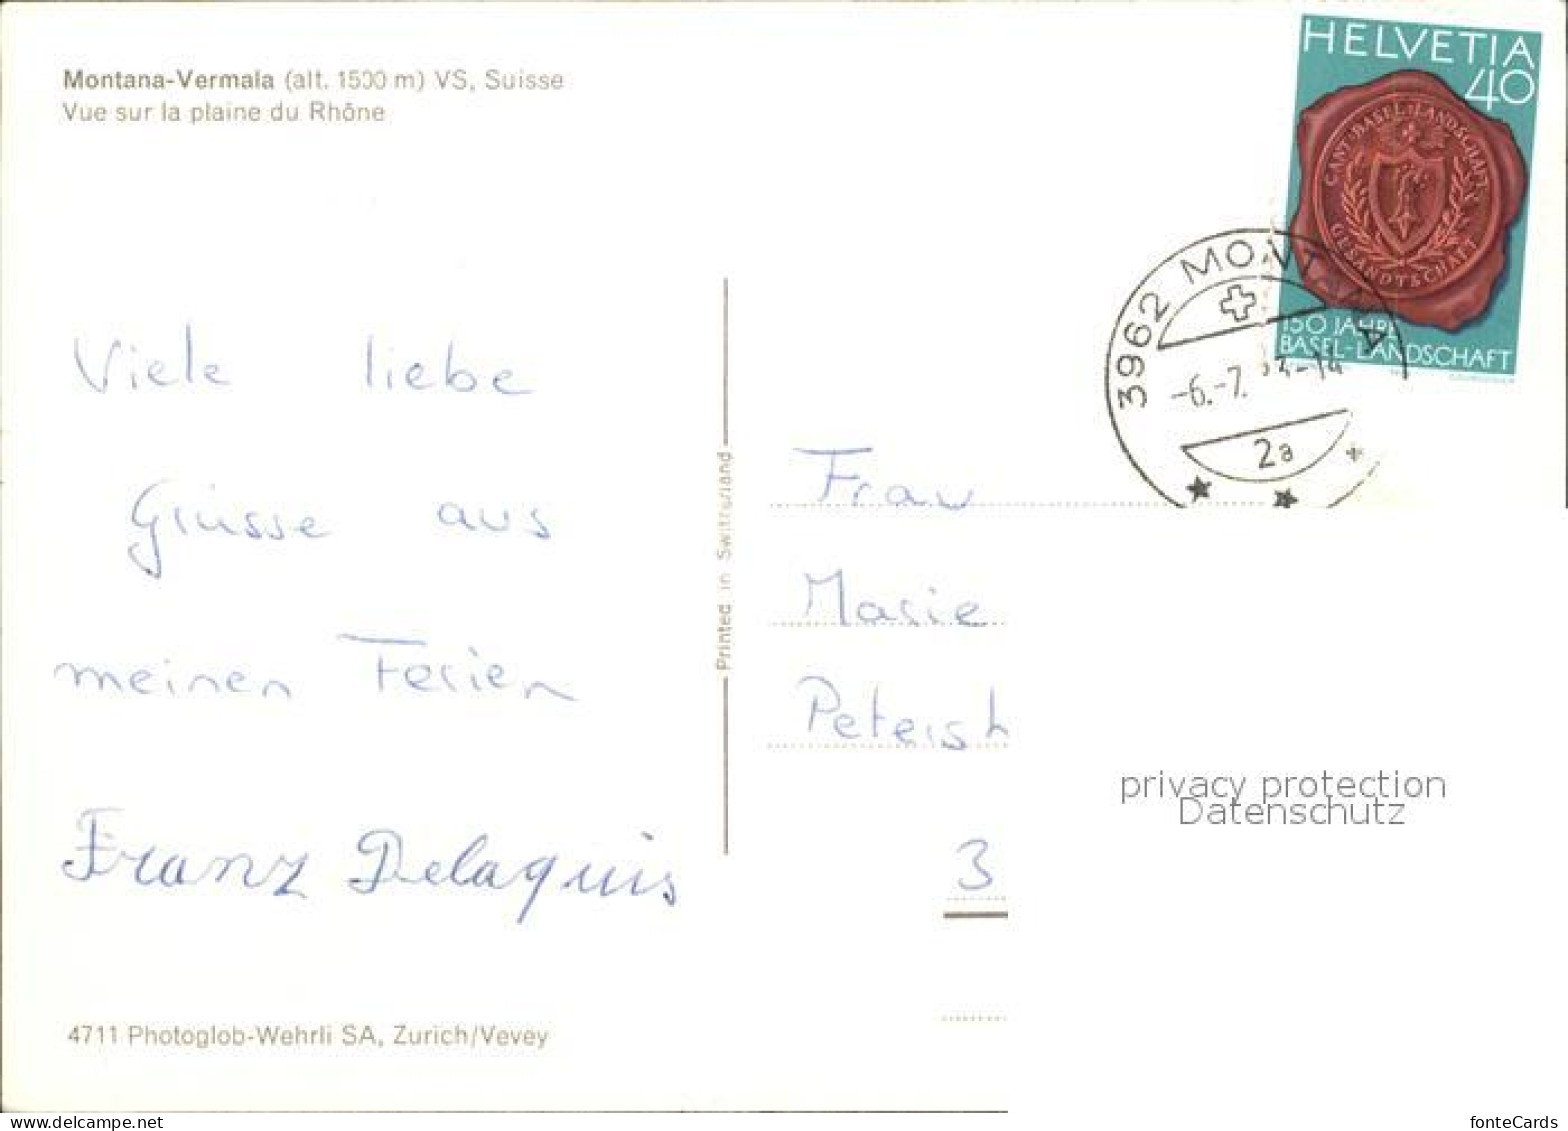 Montana-Vermala (alt. 1500 m) VS, Suisse
Vue sur la plaine du Rhône
HELVETIA
40
CANT. BASEL-LANDSCHAFT
GESANDTSCHAFT
150 JAHRE
BASEL-LANDSCHAFT
3962 MONTANA
-6.-7. 83-14
2a
Viele liebe
Grüsse aus
meinen Ferien
Franz Delaquis
Printed in Switzerland
Frau
Marie
Petersh
3
privacy protection
Datenschutz
4711 Photoglob-Wehrli SA, Zurich/Vevey
delcampe.net
fonteCards